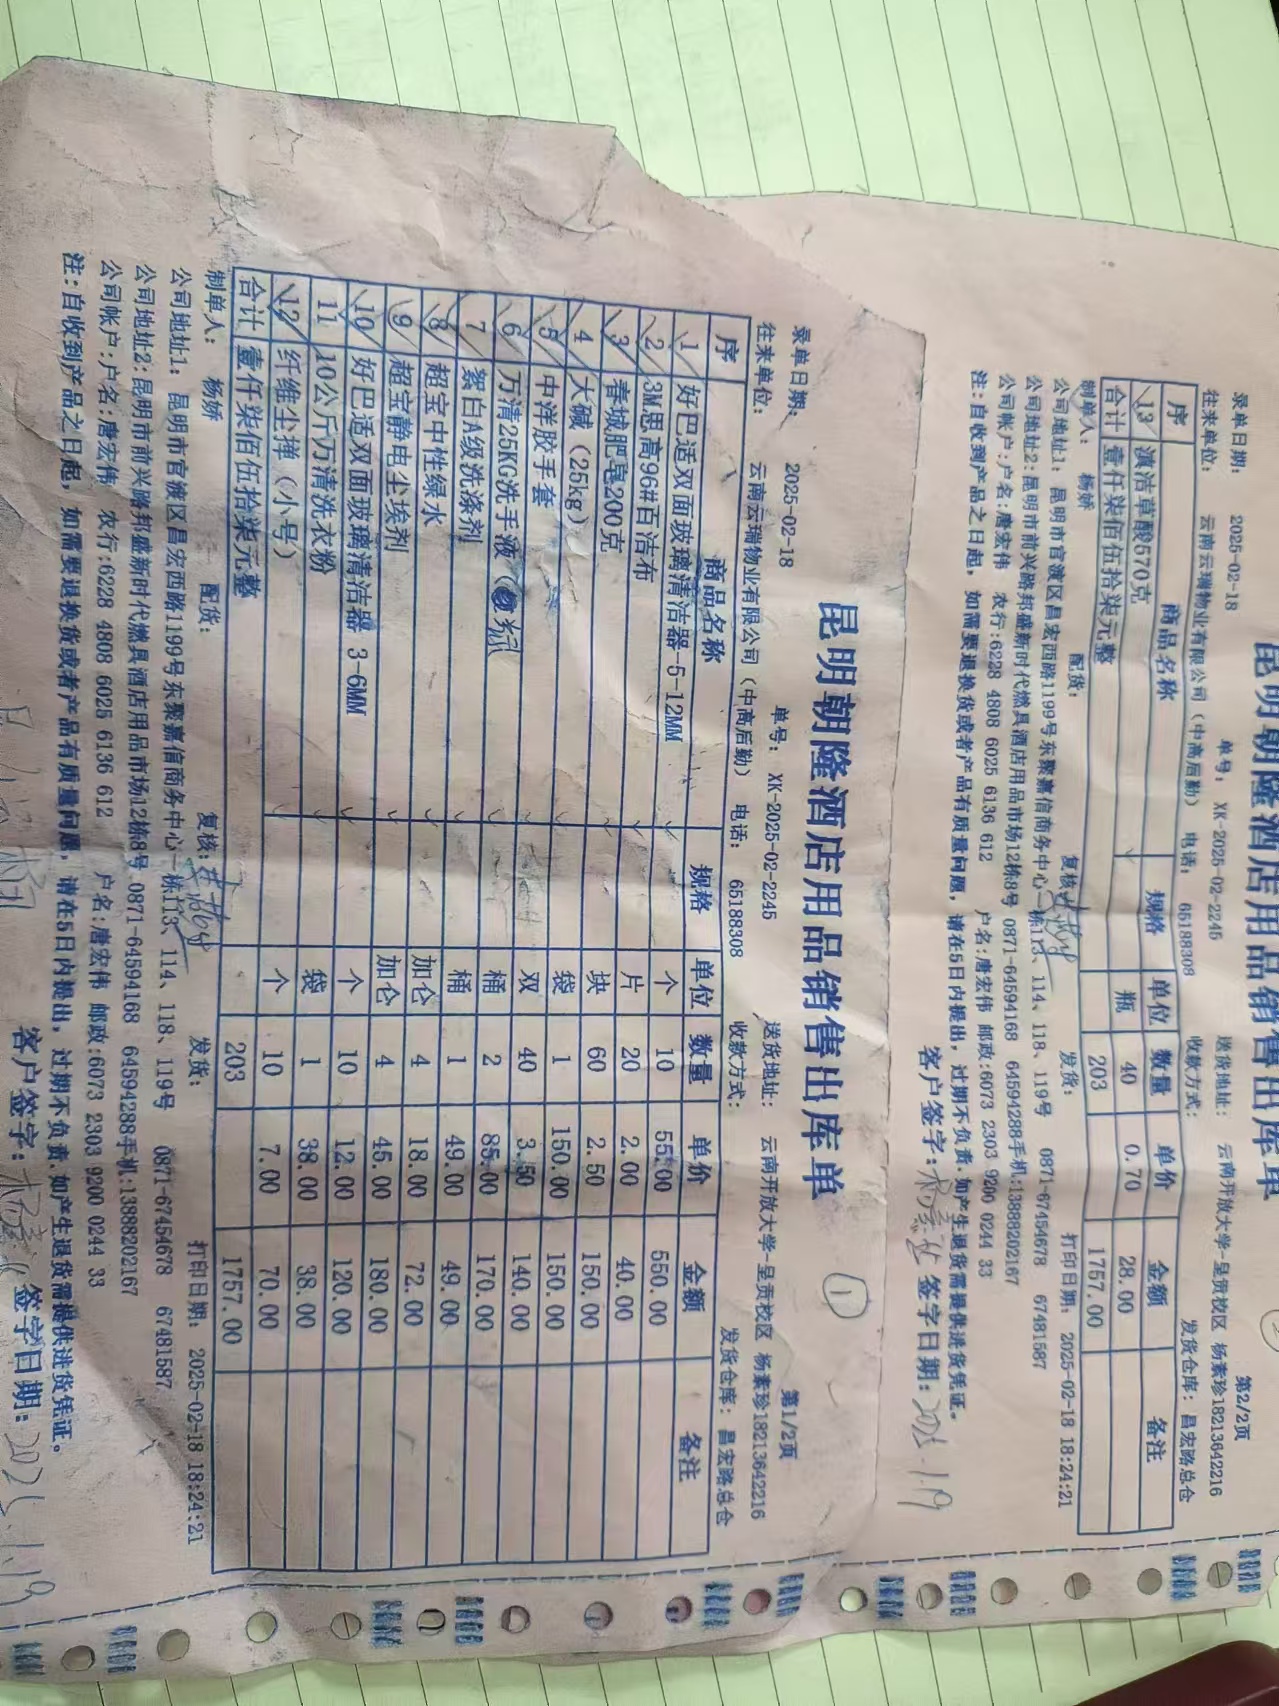 昆明朝隆酒店用品销售出库单
① 第1/2页
录单日期: 2025-02-18 单号: XK-2025-02-2245 送货地址: 云南开放大学-呈贡校区 杨素珍18213642216
往来单位: 云南云瑞物业有限公司(中高后勤) 电话: 65188308 收款方式: 发货仓库: 昌宏路总仓
序 商品名称 规格 单位 数量 单价 金额 备注
1 好巴适双面玻璃清洁器 5-12MM 个 10 55.00 550.00
2 3M思高96#百洁布 片 20 2.00 40.00
3 春城肥皂200克 块 60 2.50 150.00
4 大碱(25kg) 袋 1 150.00 150.00
5 中洋胶手套 双 40 3.50 140.00
6 万清25KG洗手液( 桶 2 85.00 170.00
7 絮白A级洗涤剂 桶 1 49.00 49.00
8 超宝中性绿水 加仑 4 18.00 72.00
9 超宝静电尘埃剂 加仑 4 45.00 180.00
10 好巴适双面玻璃清洁器 3-6MM 个 10 12.00 120.00
11 10公斤万清洗衣粉 袋 1 38.00 38.00
12 纤维尘掸(小号) 个 10 7.00 70.00
合计 壹仟柒佰伍拾柒元整 203 1757.00
制单人: 杨娇 配货: 复核: 发货: 打印日期: 2025-02-18 18:24:21
公司地址1: 昆明市官渡区昌宏西路1199号东聚嘉信商务中心一栋113、114、118、119号 0871-67454678 67481587
公司地址2:昆明市前兴路邦盛新时代燃具酒店用品市场12栋8号 0871-64594168 64594288手机:13888202167
公司帐户:户名:唐宏伟 农行:6228 4808 6025 6136 612 户名:唐宏伟 邮政:6073 2303 9200 0244 33
注:自收到产品之日起, 如需要退换货或者产品有质量问题, 请在5日内提出, 过期不负责.如产生退货需提供进货凭证。
客户签字: 签字日期:
昆明朝隆酒店用品销售出库单
第2/2页
录单日期: 2025-02-18 单号: XK-2025-02-2245 送货地址: 云南开放大学-呈贡校区 杨素珍18213642216
往来单位: 云南云瑞物业有限公司(中高后勤) 电话: 65188308 收款方式: 发货仓库: 昌宏路总仓
序 商品名称 规格 单位 数量 单价 金额 备注
13 滇洁草酸570克 瓶 40 0.70 28.00
合计 壹仟柒佰伍拾柒元整 203 1757.00
制单人: 杨娇 配货: 复核: 发货: 打印日期: 2025-02-18 18:24:21
公司地址1: 昆明市官渡区昌宏西路1199号东聚嘉信商务中心一栋113、114、118、119号 0871-67454678 67481587
公司地址2:昆明市前兴路邦盛新时代燃具酒店用品市场12栋8号 0871-64594168 64594288手机:13888202167
公司帐户:户名:唐宏伟 农行:6228 4808 6025 6136 612 户名:唐宏伟 邮政:6073 2303 9200 0244 33
注:自收到产品之日起, 如需要退换货或者产品有质量问题, 请在5日内提出, 过期不负责.如产生退货需提供进货凭证。
客户签字: 签字日期: